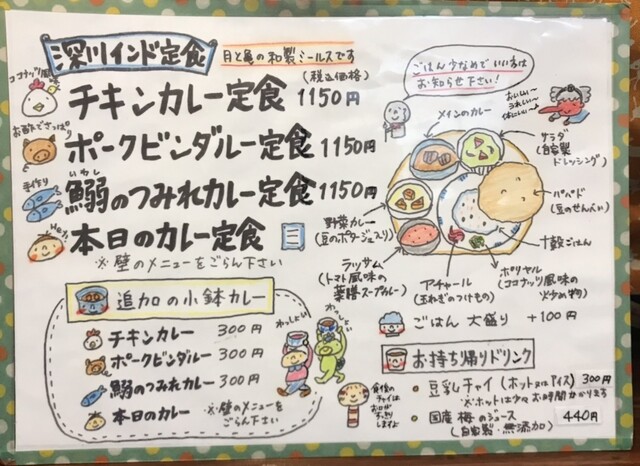 深川インド定食
月と亀の和製ミールスです
(税込価格)
ココナッツ風
チキンカレー定食 1150円
お酢でさっぱり
ポークビンダルー定食 1150円
手作り
いわし
鰯のつみれカレー定食 1150円
本日のカレー定食
※壁のメニューをごらん下さい
追加の小鉢カレー
チキンカレー 300円
ポークビンダルー 300円
鰯のつみれカレー 300円
本日のカレー ※壁のメニューを
ごらん下さい
わっしょい
わっしょい
ごはん少なめでいい方は
お知らせ下さい!
おいしい〜
うれしい〜
体にいい〜
メインのカレー
サラダ
(自家製
ドレッシング)
パパド
(豆のせんべい)
十穀ごはん
ポリヤル
(ココナッツ風味の
炒め物)
アチャール
(玉ねぎのつけもの)
野菜カレー
(豆のポタージュ入り)
ラッサム
(トマト風味の
薬膳スープカレー)
ごはん 大盛り +100円
お持ち帰りドリンク
豆乳チャイ (ホット又はアイス) 300円
※ホットは少々お時間かかります
国産梅のジュース 440円
(自家製・無添加)
食後の
チャイは
お口が
すっきり
しますよ